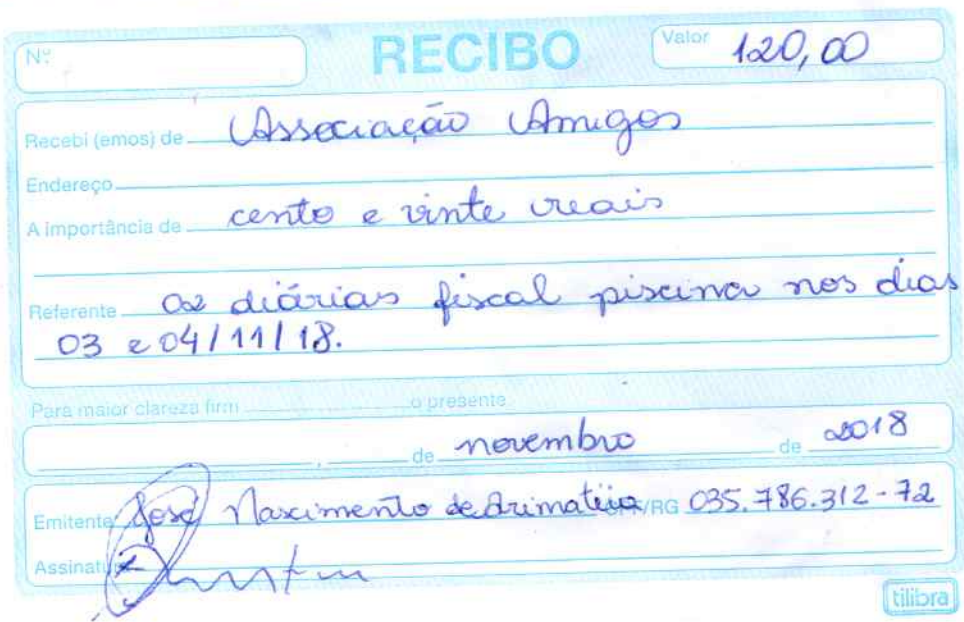 Nº RECIBO Valor 120,00
Recebi (emos) de Associação Amigos
Endereço
A importância de cento e vinte reais
Referente 02 diárias fiscal piscina nos dias
03 e 04/11/18.
Para maior clareza firm o presente
, de novembro de 2018
Emitente José Nascimento de Arimatéia CPF/RG 035.786.312-72
Assinatura
tilibra